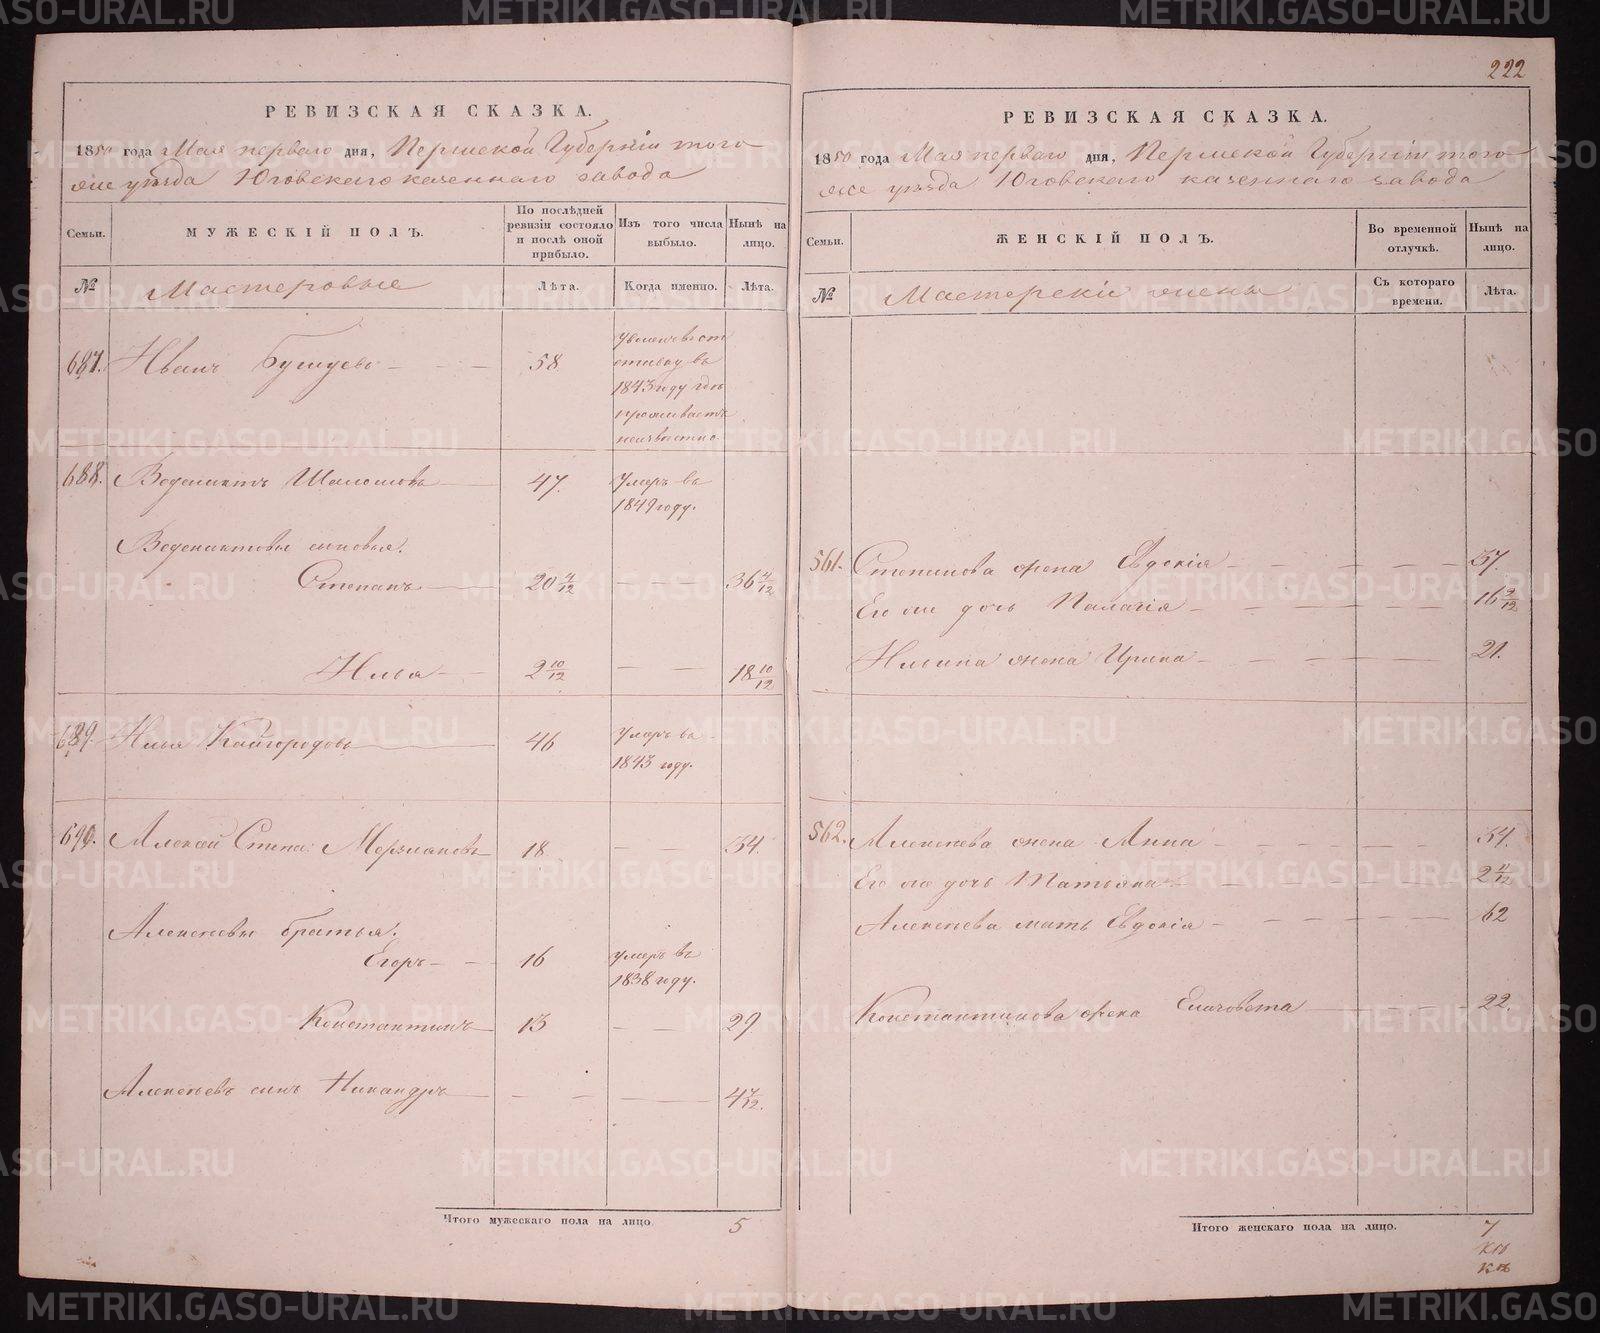 РЕВИЗСКАЯ СКАЗКА.
1850 года Мая перваго дня, Пермской Губерніи того
же уѣзда Юговскаго казеннаго завода
Семьи.
МУЖЕСКІЙ ПОЛЪ.
По послѣдней ревизіи состояло и послѣ оной прибыло.
Изъ того числа выбыло.
Нынѣ на лицо.
№
Мастеровые
Лѣта.
Когда именно.
Лѣта.
687. Иванъ Бушуевъ 58
въ
1843 году гдѣ
проживаетъ
неизвѣстно
688. Ведениктъ 47. Умеръ въ
1849 году.
Веденихтовы сыновья.
Степанъ 20 4/12 36 4/12
Илья 2 10/12 18 10/12
689. Илья Кайгородовъ 46 Умеръ въ
1843 году.
690. Алексѣй Степа: 18 34.
Алексѣевы братья:
Егоръ 16 умеръ въ
1838 году.
Константинъ 13 29
Алексѣевъ сынъ Никандръ 4 7/12.
Итого мужескаго пола на лицо. 5
222
РЕВИЗСКАЯ СКАЗКА.
1850 года Мая перваго дня, Пермской Губерніи того
же уѣзда Юговскаго казеннаго завода
Семьи.
ЖЕНСКІЙ ПОЛЪ.
Во временной отлучкѣ.
Нынѣ на лицо.
№
Мастерскіе жены
Съ котораго времени.
Лѣта.
561. Степанова жена Евдокія 37.
Его же дочь Палагія 16 2/12
Ильина жена Ирина 21.
562. Алексѣева жена Анна 34.
Его же дочь Татьяна 2
Алексѣева мать Евдокія 62
Константинова жена Елизовета 22.
Итого женскаго пола на лицо. 7
METRIKI.GASO-URAL.RU